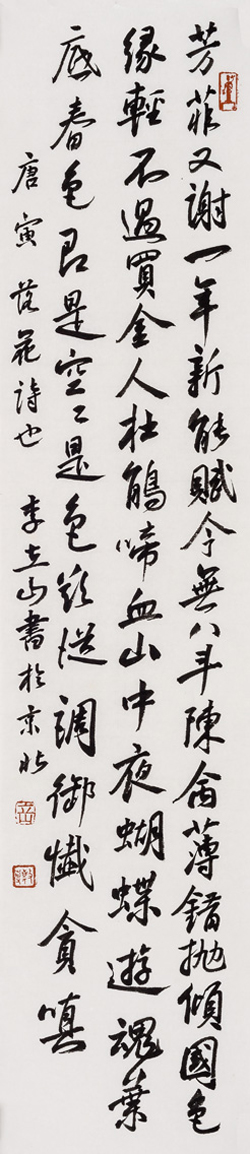 芳菲又謝一年新能賦今無八斗陳命薄錯拋傾國色
緣輕不遇買金人杜鵑啼血山中夜蝴蝶遊魂葉
底春色即是空々是色欲從調御懺貪嗔
唐寅落花詩也 李立山書於京北